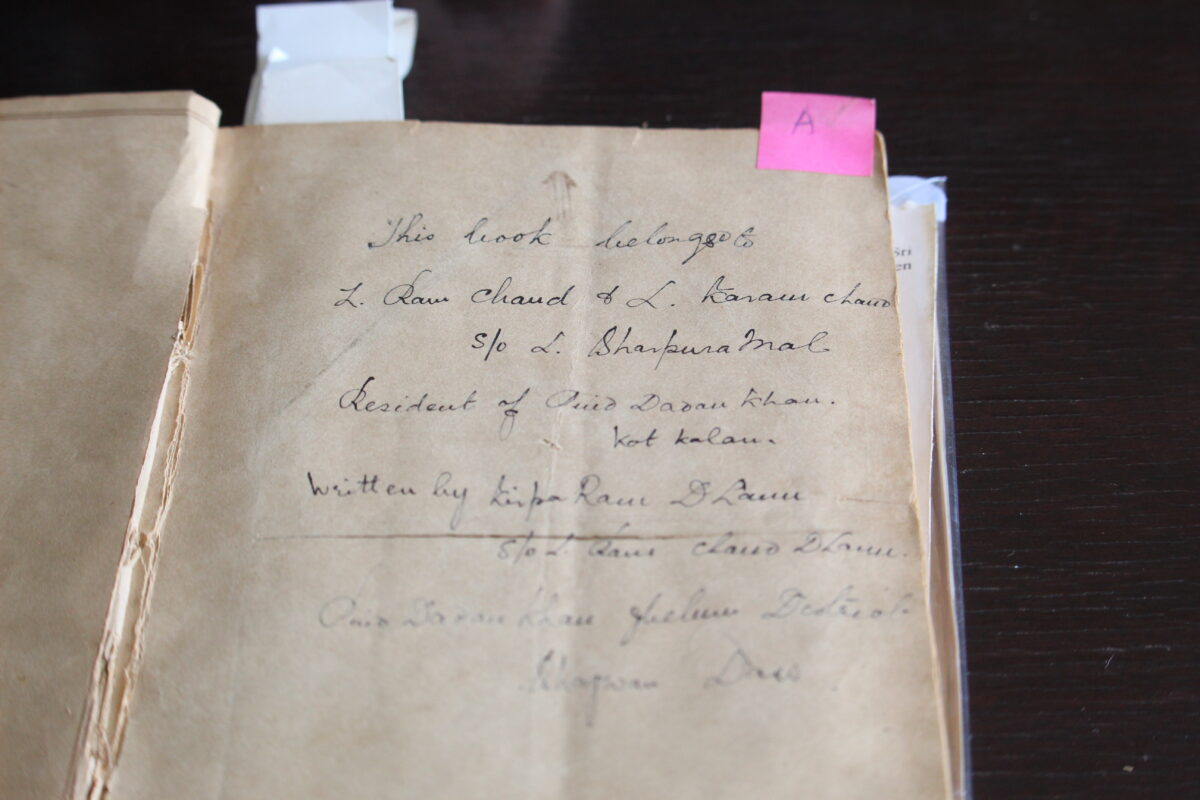 A
Sri
en
This book belongs to
L. Ram Chand & L. Karam Chand
S/o L. Bharpura Mal
Resident of Pind Dadan Khan.
Kot Kalan.
Written by Kirpa Ram D Lamu
S/o L. Ram Chand D Lamu.
Pind Dadan Khan Jhelum District
Bhagwan Dass